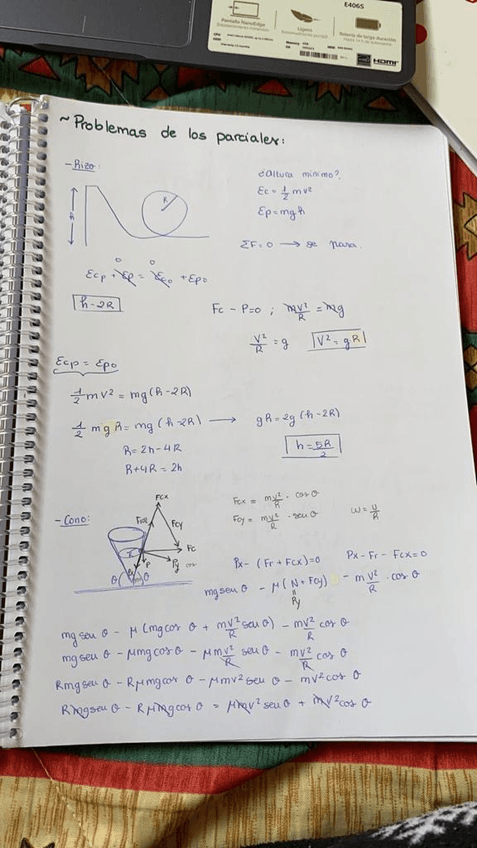 E406S
Pantalla NanoEdge
Ligero
Batería de larga duración
HDMI
~Problemas de los parciales:
- Rizo:
R
h
¿altura mínimo?
Ec = 1/2 mv²
Ep = mgh
ΣF=0 → se para.
0 0
Ecp + Ep = Eco + Epo
h-2R
Fc - P=0 ; mv²/R = mg
v²/R = g v² = gR
Ecp = Epo
1/2 mv² = mg(h-2R)
1/2 mgR = mg(h-2R) → gR=2g(h-2R)
R=2h-4R
R+4R=2h
h=5R/2
- Cono:
Fcx
Fcy
Fc
P
Py
θ
θ
Fcx = mv²/R · cos θ
Fcy = mv²/R · seu θ
ω=v/R
Px- (Fr+Fcx)=0 Px-Fr-Fcx=0
mgseu θ - μ(N+Fcy) - mv²/R · cos θ
Py
mgseu θ - μ(mgcos θ + mv²/R seu θ) - mv²/R cos θ
mgseu θ - μmgcos θ - μmv²/R seu θ - mv²/R cos θ
Rmgseu θ - Rμmgcos θ - μmv²seu θ - mv²cos θ
Rmgseu θ - Rμmgcos θ = μmv²seu θ + mv²cos θ